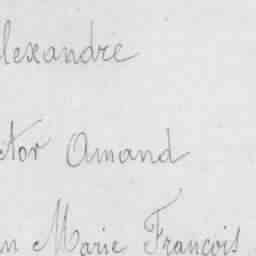 lexandre
ctor Amand
n Marie François